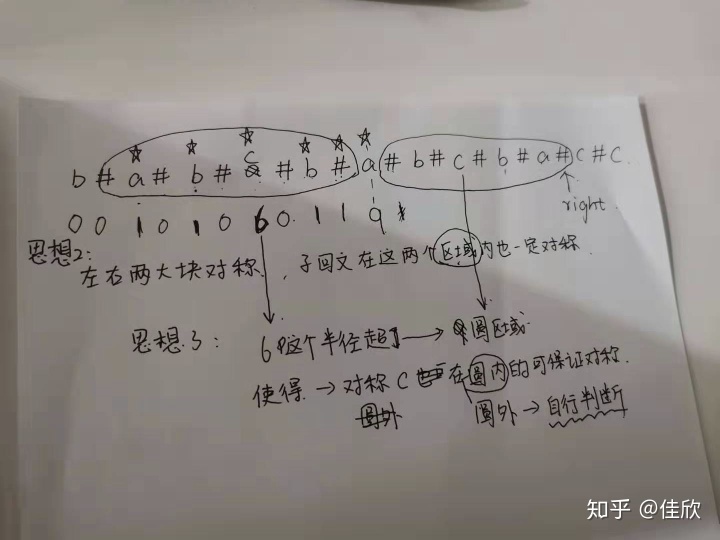 b # a # b # c # b # a # b # c # b # a # c # c
0 0 1 0 1 0 6 0 1 1 9
right
思想2:
左右两大块对称, 子回文在这两个区域内也一定对称
思想3: 6 这个半径超了 → 圈区域
使得 → 对称 C 在圈内的可保证对称
圈外 圈外 → 自行判断
知乎 @佳欣